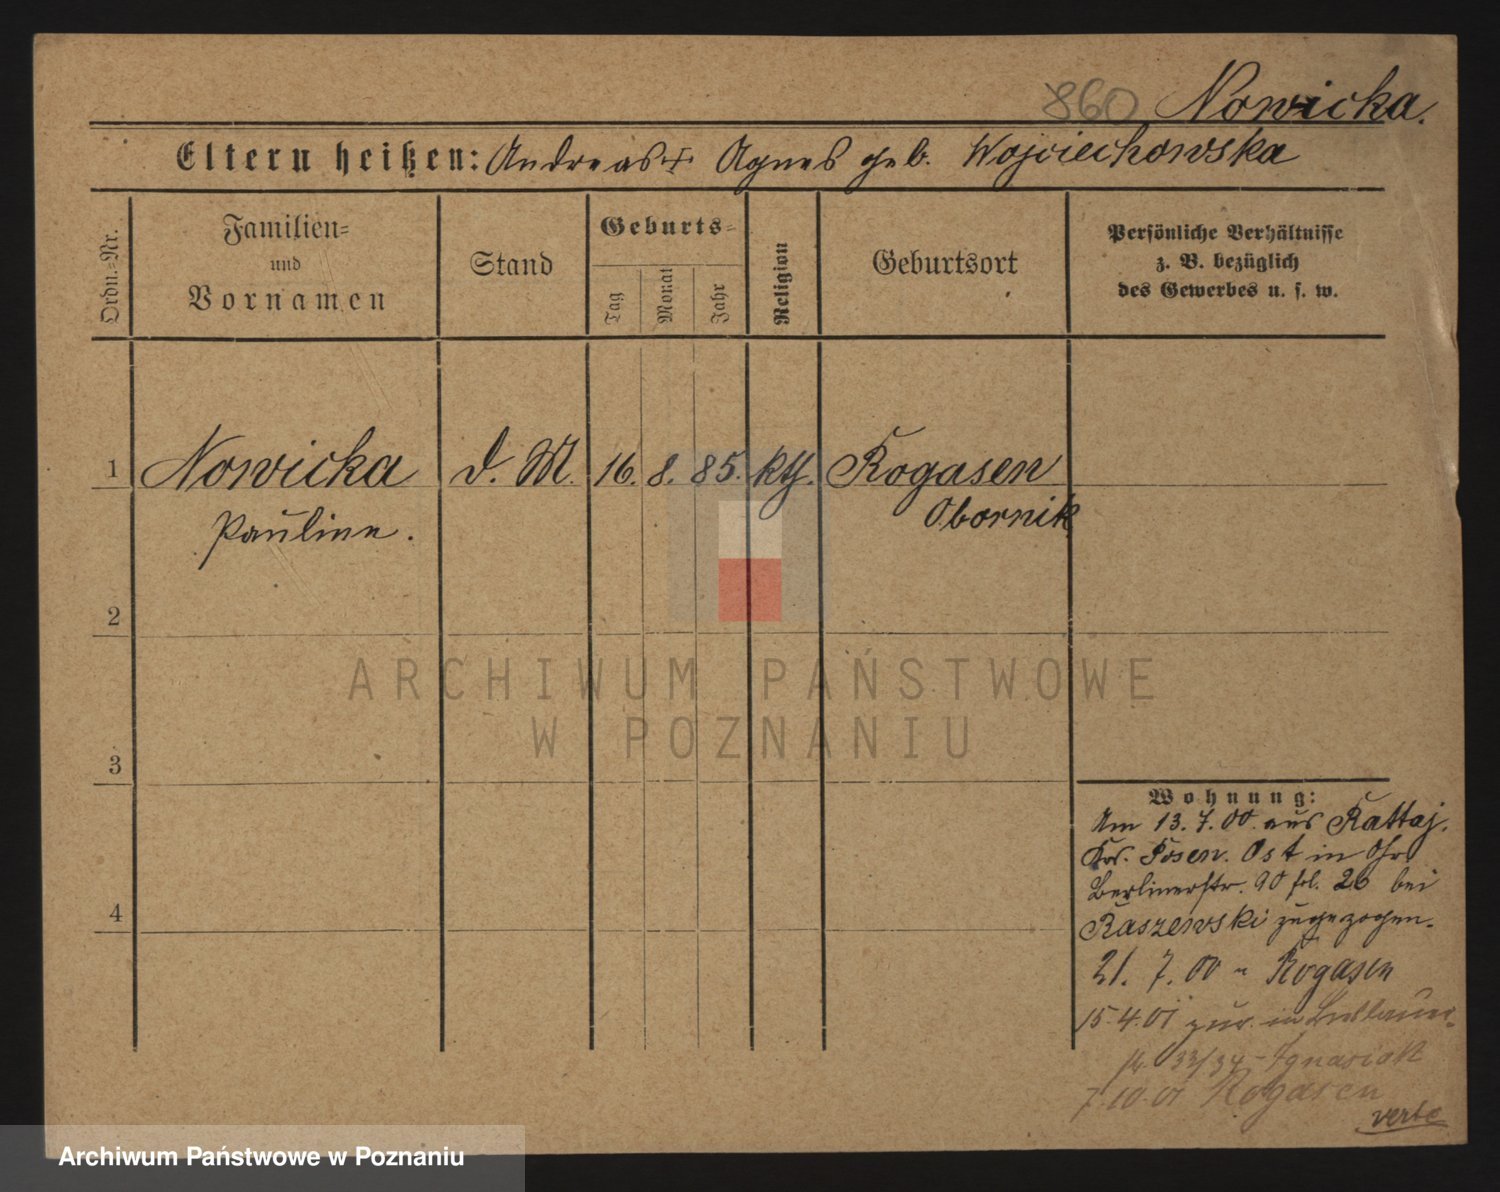 860 Nowicka.
Eltern heißen: Andreas + Agnes geb. Wojciechowska
Ordn.=Nr.
Familien=
und
Vornamen
Stand
Geburts=
Tag
Monat
Jahr
Religion
Geburtsort
Persönliche Verhältnisse
z. B. bezüglich
des Gewerbes u. s. w.
1 Nowicka d. M. 16. 8. 85. kth. Rogasen
Obornik
Pauline.
2
3
4
ARCHIWUM PAŃSTWOWE
W POZNANIU
Wohnung:
Am 13.7.00. aus Kattaj.
Krs. Posen. Ost in
Berlinerstr. 90 bei
Raszewski zugezogen.
21. 7. 00 n Rogasen
15.4.01 zur. in
33/34 - Ignasiak
7.10.01 Rogasen
verte
Archiwum Państwowe w Poznaniu